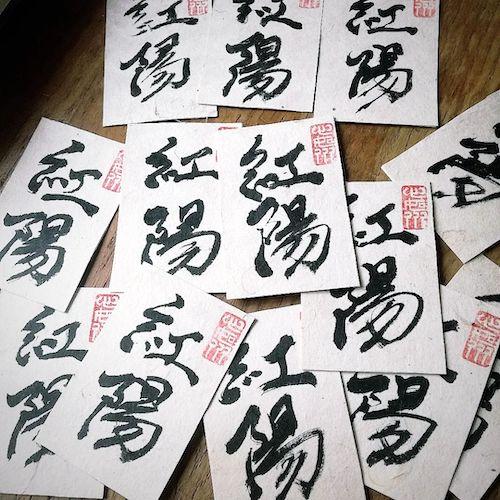 紅陽
紅陽
紅陽
紅陽
紅陽
紅陽
紅陽
紅陽
紅陽
紅陽
陽